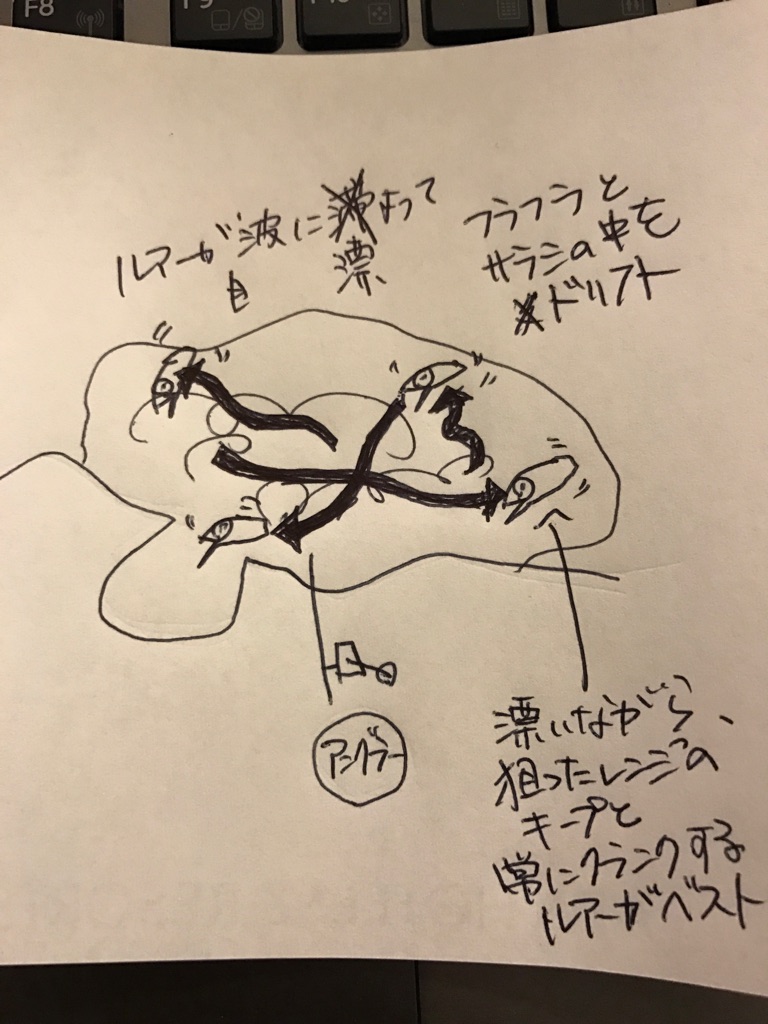 F8
F9
ルアーが波によって
漂
フラフラと
サラシの中を
ドリフト
アングラー
漂いながら、
狙ったレンジの
キープと
常にクランクする
ルアーがベスト